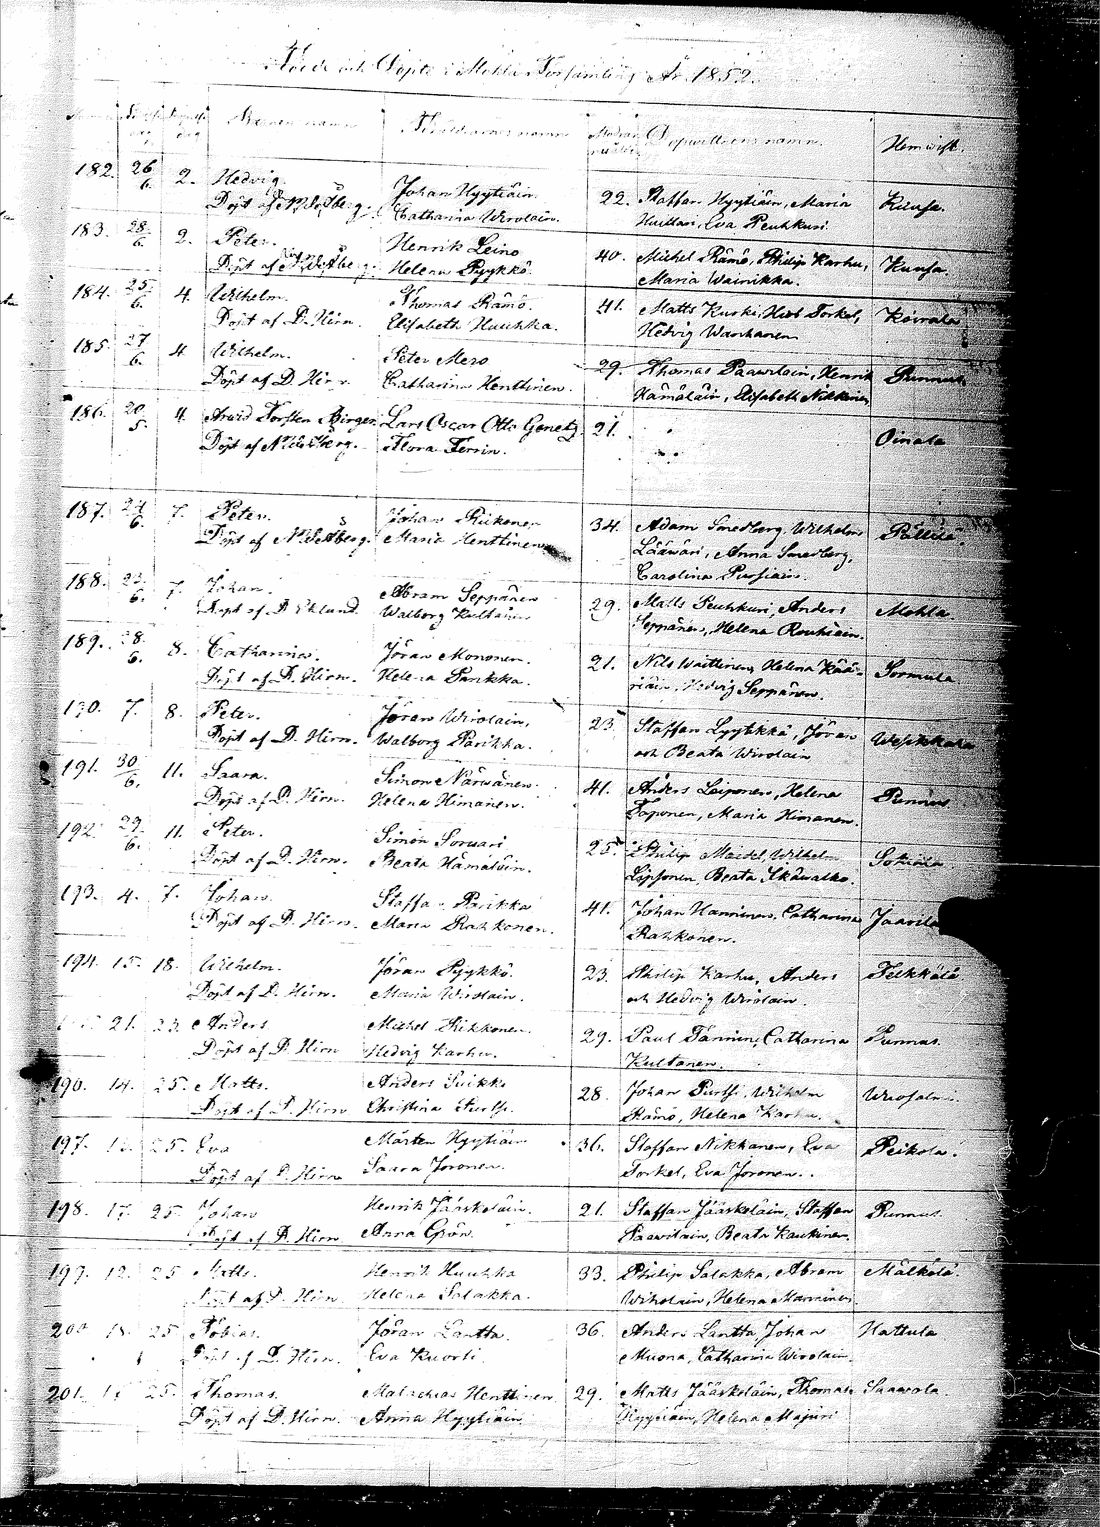 Födde och Döpte i Mohla Församling År 1852.
Barnens namn Föräldrarnes namn Modrens Dopvittnens namn. Hemvist.
182. 26/6. 2. Hedvig. Johan Hyytiäin. 22. Staffan Hyytiäin, Maria Kuusa.
Döpt af Catharina Wirolain. Huttari, Eva Peuhkuri.
183. 28/6. 2. Peter. Henrik Leino 40. Michel Rämö, Philip Karhu, Kuusa.
Döpt af Helena Pyykkö. Maria Wainikka.
184. 25/6 4. Wilhelm. Thomas Rämö. 41. Matts Kurki, Torkel, Koirala
Döpt af D. Hirn. Elisabeth Huuhka. Hedvig Wanhanen
185. 27/6. 4 Wilhelm. Peter Mero 29. Thomas Paavilain, Henrik Punnus
Döpt af D. Hirn Catharina Henttinen. Hämäläin, Elisabeth Nikkinen
186. 20/5. 4. Arvid Torsten Birger. Lars Oscar Otto Genetz. 21. Oinala
Döpt af Flora Ferrin.
187. 24/6. 7. Peter. Johan Riikonen 34. Adam Smedberg, Wilhelm Pällilä.
Döpt af Maria Henttinen Lääväri, Anna Smedberg,
Carolina Pursiain.
188. 7. Johan. Abram Seppänen 29. Matts Peuhkuri, Anders Mohla.
Döpt af D. Eklund. Walborg Kultanen Seppänen, Helena Rouhiain.
189. 28/6. 8. Catharina. Jöran Mononen. 21. Nils Waittinen, Helena Kää- Sormula
Döpt af D. Hirn. Helena Parikka. riäin, Hedvig Seppänen.
190. 7. 8. Peter. Jöran Wirolain, 23. Staffan Lyytikkä, Jöran
Döpt af D. Hirn. Walborg Parikka. och Beata Wirolain
191. 30/6. 11. Saara. Simon Närvänen. 41. Anders Loiponen, Helena Punnus
Döpt af D. Hirn. Helena Himanen. Toponen, Maria Himanen.
192. 29/6. 11. Peter. Simon Sorvari 25. Philip Meidel, Wilhelm
Döpt af D. Hirn. Beata Hämäläin. Lipponen, Beata Ikävalko.
193. 4. 7. Johan. Staffan Parikka 41. Johan Hanninen, Catharina Jaarila
Döpt af D. Hirn. Maria Rahkonen. Rahkonen.
194. 15. 18. Wilhelm. Jöran Pyykkö. 23. Philip Karhu, Anders Telkkälä
Döpt af D. Hirn. Maria Wirolain. och Hedvig Wirolain.
21. 23. Anders Michel Rikkonen. 29. Paul Tanninen, Catharina Punnus.
Döpt af D. Hirn Hedvig Karhu. Kultanen.
196. 14. 25. Matts. Anders Suikki 28. Johan Purssi, Wilhelm
Döpt af D. Hirn Christina Purssi. Rämö, Helena Karhu.
197. 25. Eva Mårten Hyytiäin 36. Staffan Nikkanen, Eva Peikola.
Döpt af D. Hirn Saara Joronen. Torkel, Eva Joronen.
198. 17. 25. Johan Henrik Jääskeläin. 21. Staffan Jääskeläin, Staffan Punnus.
Döpt af D. Hirn Anna Grön. Paavilain, Beata Kaukinen.
199. 12. 25 Matts. Henrik Huuhka 33. Philip Salakka, Abram Mälkölä.
Döpt af D. Hirn. Helena Salakka. Wiholain, Helena Manninen.
200 18. 25. Tobias. Jöran Lantta. 36. Anders Lantta, Johan Hattula
Döpt af D. Hirn. Eva Kuorti. Muona, Catharina Wirolain.
201. 17 25. Thomas. Malachias Henttinen 29. Matts Jääskeläin, Thomas Saarola
Döpt af D. Hirn. Anna Hyytiäin Hyytiäin, Helena Majuri